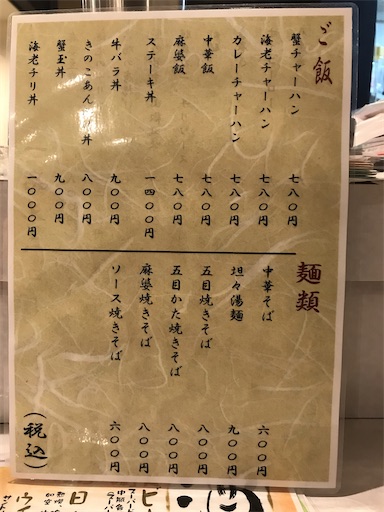 ご飯
蟹チャーハン 七八〇円
海老チャーハン 七八〇円
カレーチャーハン 七八〇円
中華飯 七八〇円
麻婆飯 七八〇円
ステーキ丼 一四〇〇円
牛バラ丼 九〇〇円
きのこあん 丼 八〇〇円
蟹玉丼 九〇〇円
海老チリ丼 一〇〇〇円
麺類
中華そば 六〇〇円
坦々湯麺 九〇〇円
五目焼きそば 八〇〇円
五目かた焼きそば 八〇〇円
麻婆焼きそば 八〇〇円
ソース焼きそば 六〇〇円
(税込)